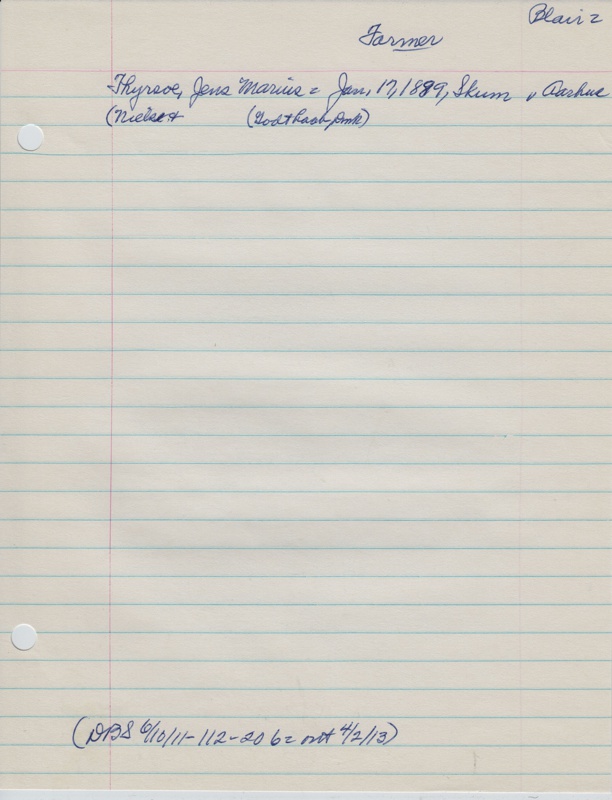 Blair 2
Farmer
Thyrsoe, Jens Marius = Jan, 17, 1889, Skum v Aarhus
(Nielsen (Godthaab, Dmk)
(DBS 6/10/11-112-20 6= 4/2/13)